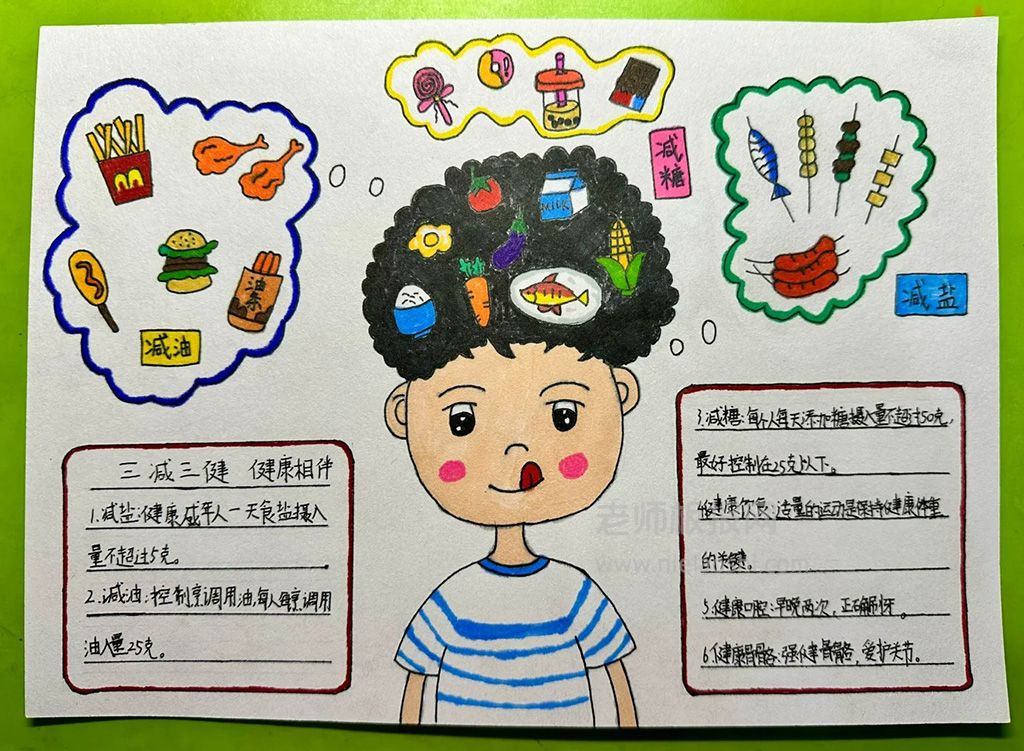 减糖
MILK
油条
减油
减盐
三减三健 健康相伴
1.减盐:健康成年人一天食盐摄入
量不超过5克。
2.减油:控制烹调用油,每人每烹调用
油量25克。
3.减糖:每个人每天添加糖摄入量不超过50克,
最好控制在25克以下。
4.健康饮食:适量的运动是保持健康体重
的关键。
5.健康口腔:早晚两次,正确刷牙。
6.健康骨骼:强健骨骼,爱护关节。